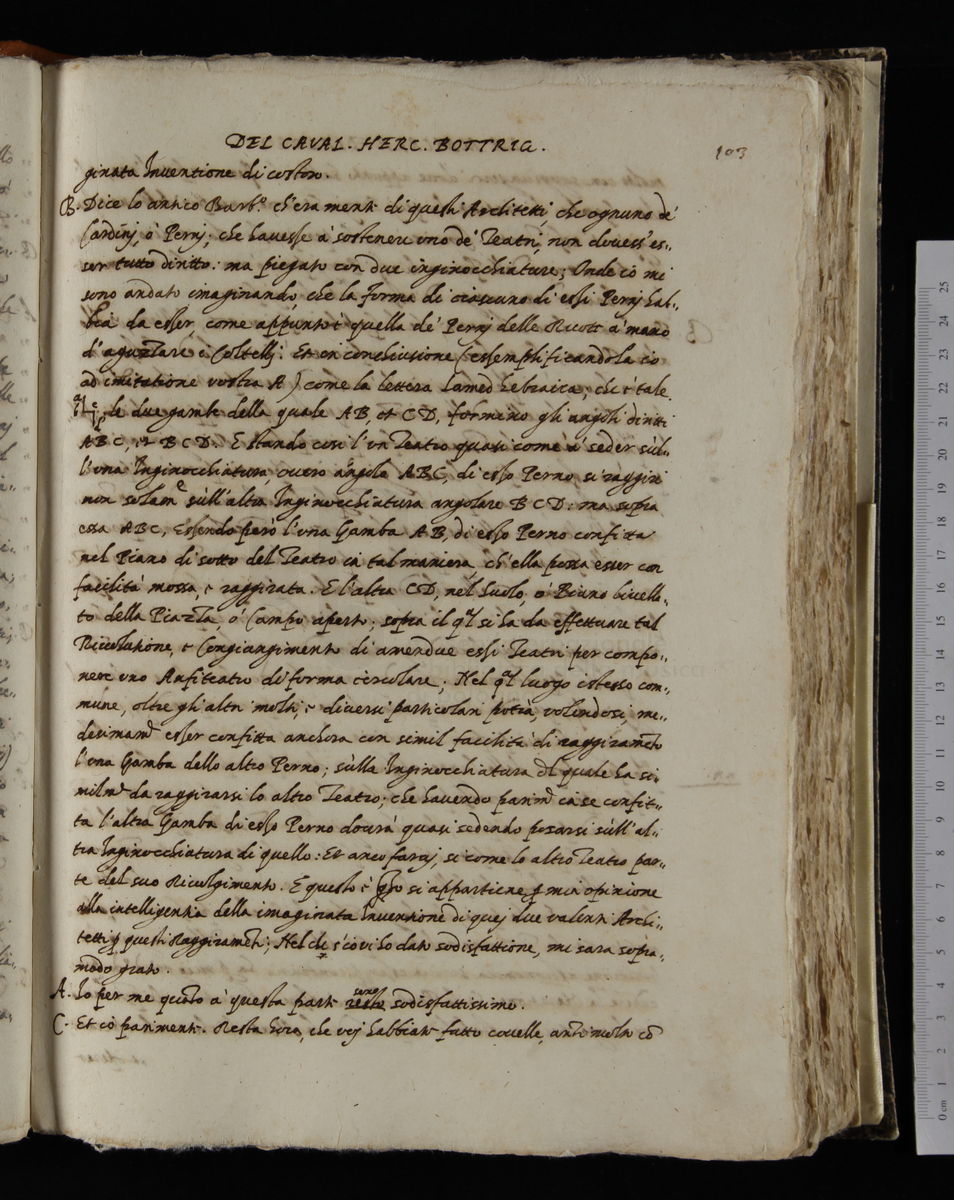 DEL CAVAL. HERC. BOTTRIG.
103
ginata Inventione di costoro.
B. Dice lo antico Barb.o ch'era mente di questi Architetti che ognuno de'
Cardinj, ò Pernj, che havesse à sostenere uno de' Teatri, non dovess'es„
ser tutto diritto: ma piegato con due inginocchiature; Onde iò mi
sono andato imaginando, che la forma di ciascuno di essi Pernj hab„
bia da esser, come appunto è quella de' Pernj delle Ruote à mano
d'aguzzare i Coltellj. Et in conchiusione (essemplificandola iò
ad imitatione vostra A) come la lettera Lamed hebraica, che è tale
le due gambe della quale AB, et CD, formino gli angoli diritti
ABC, et BCD. E stando così l'un Teatro quasi come à seder sùl„
l'una Inginocchiatura, overo angolo ABC, di esso Perno si raggiri
non solam.e sùll'altra Inginocchiatura angolare BCD: ma sopra
essa ABC, Essendo però l'una Gamba AB, di esso Perno confitta
nel Piano di sotto del Teatro in tal maniera, ch'ella possa esser con
facilità mossa, e raggirata. E l'altra CD, nel Suolo, ò Piano livella„
to della Piazza, ò Campo aperto; sopra il ql si ha da effettuare tal
Rivolutione, e Congiungimento di amendue essi Teatri per compo„
nere uno Anfiteatro di forma circolare; Nel ql luogo istesso com„
mune, oltre gli altri molti, e diversi particolari potrà, volendosi, me„
desimamte esser confitta anchora con simil facilità di raggiramto
l'una Gamba dello altro Perno; sùlla Inginocchiatura dl quale ha si„
milmte da raggirarsi lo altro Teatro; che havendo parimte in se confit„
ta l'altra Gamba di esso Perno dovrà quasi sedendo posarsi sùll'al„
tra Inginocchiatura di quello: Et anco farsi, si come lo altro Teatro par„
te del suo Rivolgimento. E questo è qto si appartiene p mia opinione
alla intelligentia della imaginata Inventione di quej due valenti Archi„
tetti p questi Raggiramti; Nel che s'iò vi hò dato sodisfattione, mi sara sopra„
modo grato.
A. Io per me quãto à questa parte resto sono sodisfattissimo.
C. Et iò parimente. Resta hora, che voj habbiate fatto covelle, anzi molto cõ